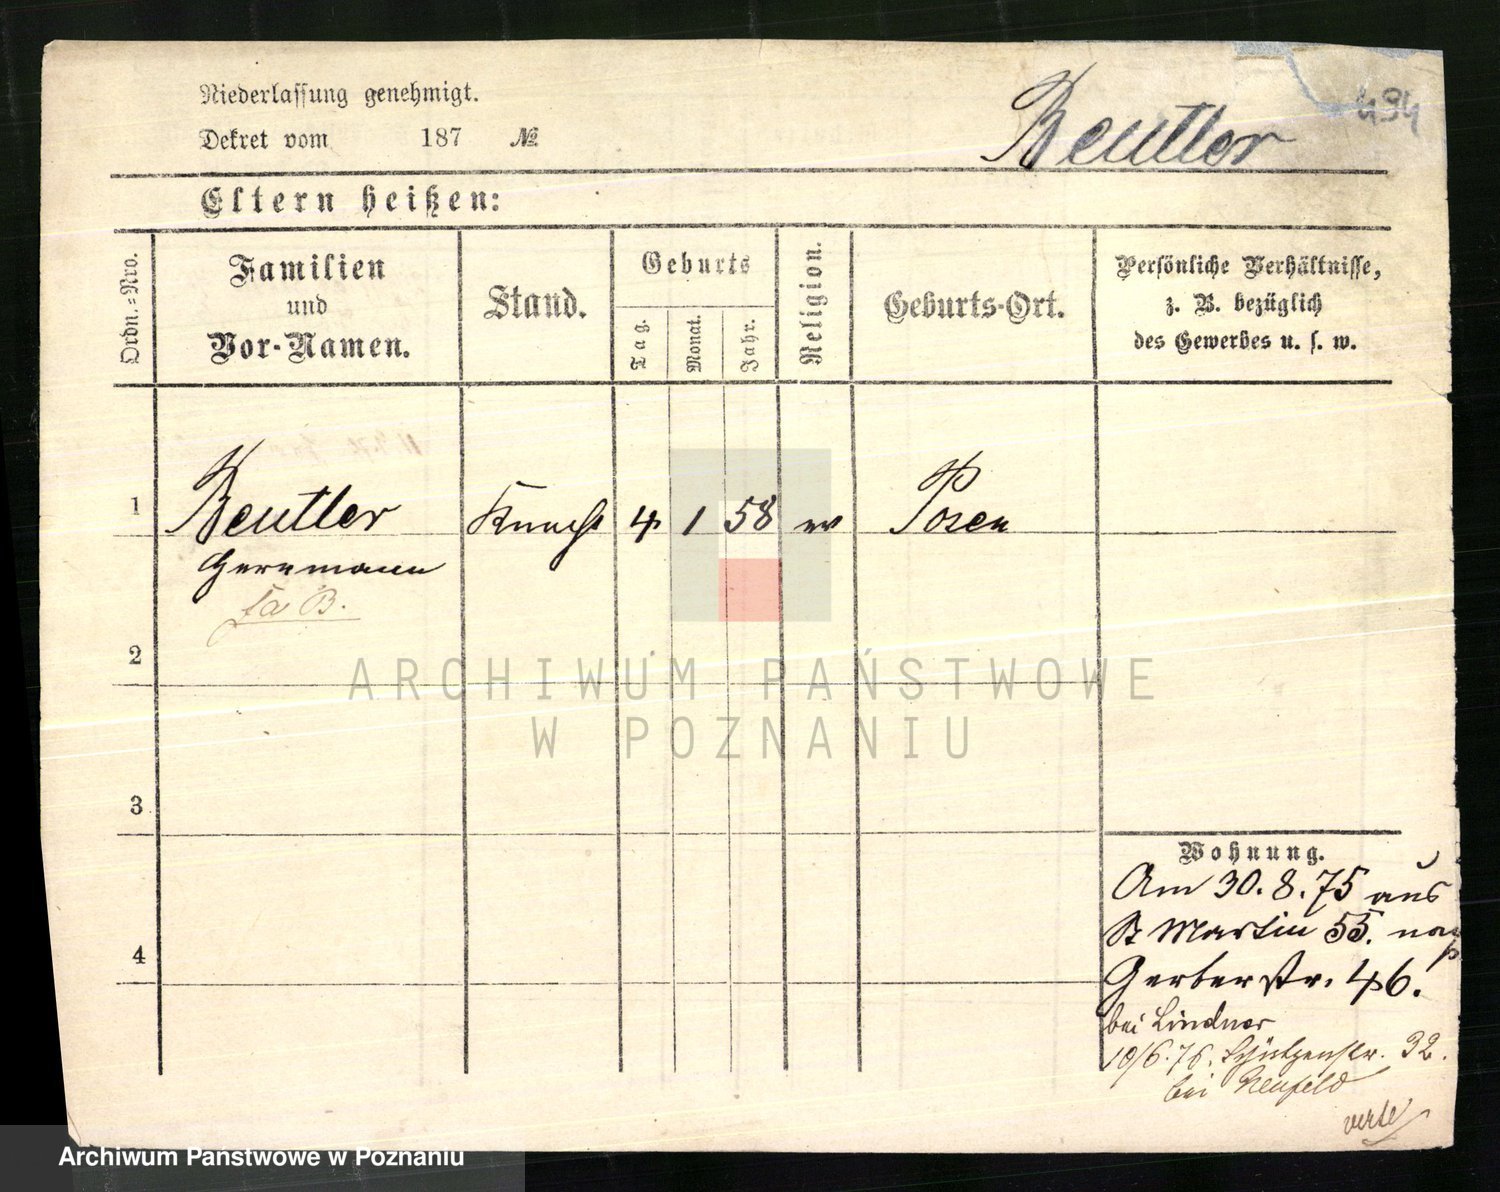 Niederlassung genehmigt.
494
Dekret vom 187 №
Beutler
Eltern heißen:
Ordn.-Nro.
Familien
und
Vor-Namen.
Stand.
Geburts
Tag.
Monat.
Jahr.
Religion.
Geburts-Ort.
Persönliche Verhältnisse,
z. B. bezüglich
des Gewerbes u. s. w.
1 Beutler Knecht 4 1 58 ev Posen
Herrmann
2
3
4
ARCHIWUM PAŃSTWOWE
W POZNANIU
Wohnung.
Am 30.8.75 aus
St Martin 55. nach
Gerberstr. 46.
bei Lindner
10/6.76. Schützenstr. 32.
bei Neufeld
verte
Archiwum Państwowe w Poznaniu